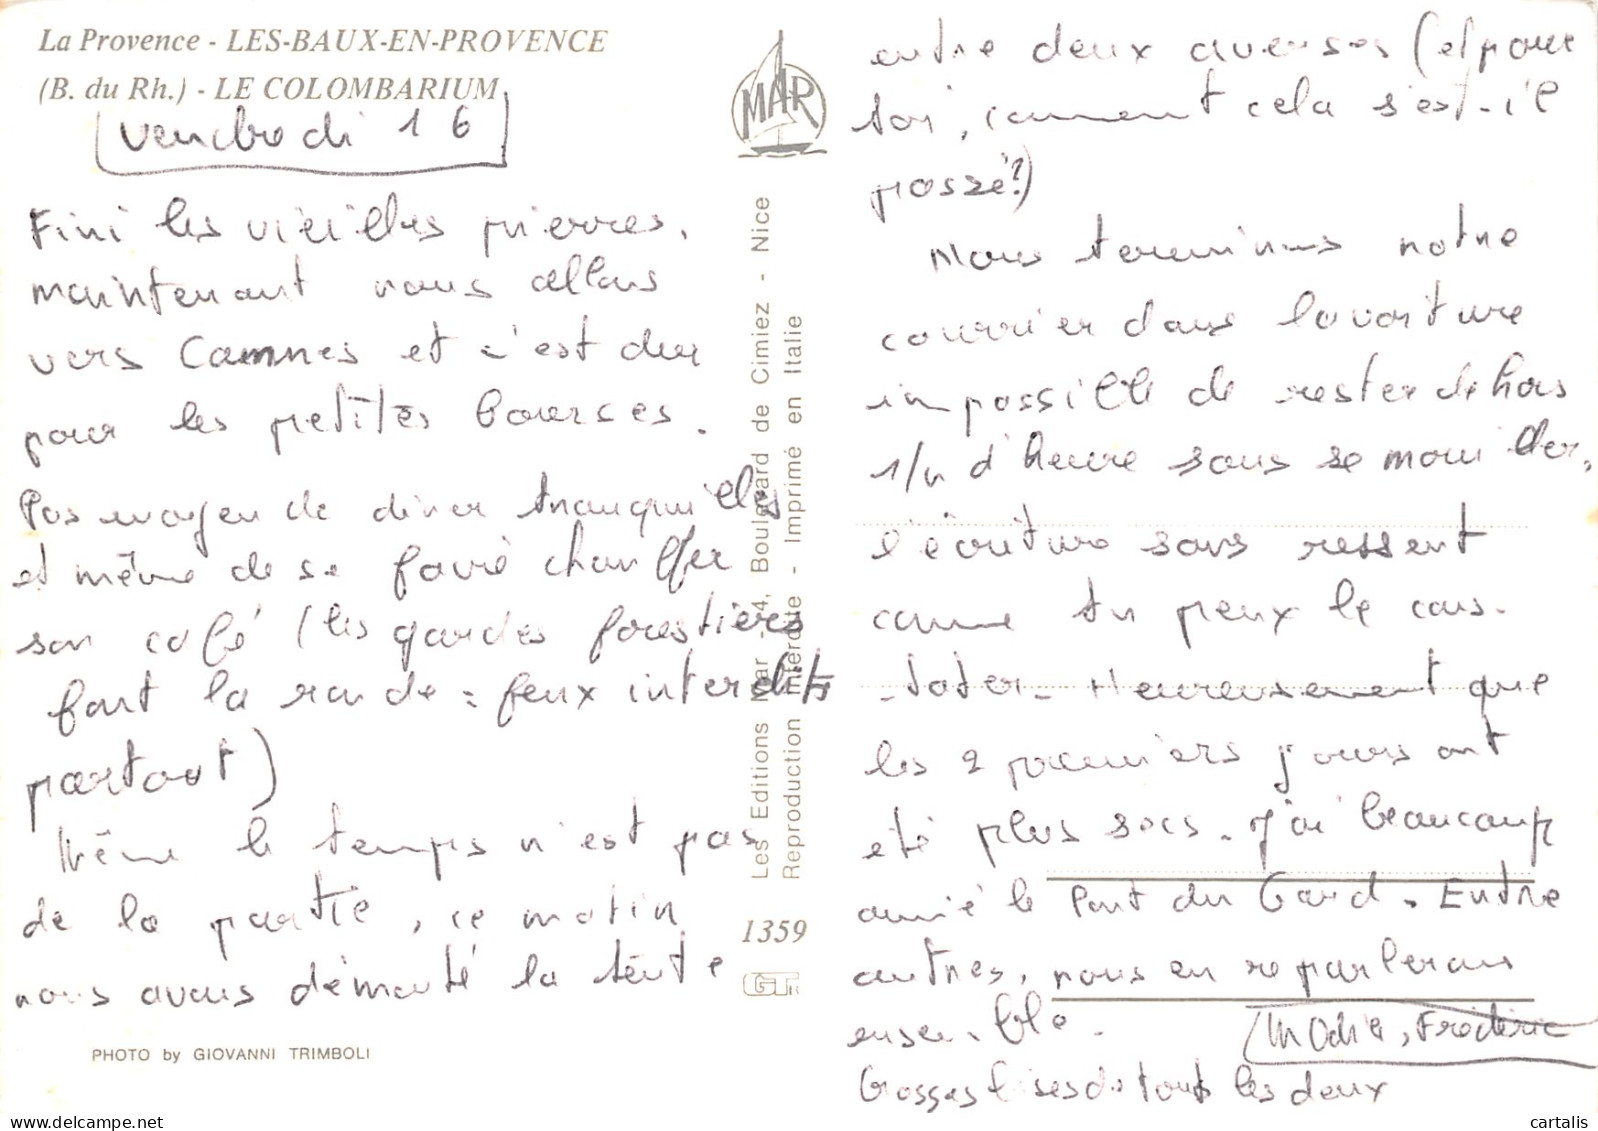 La Provence - LES-BAUX-EN-PROVENCE
(B. du Rh.) - LE COLOMBARIUM
vendredi 16
Fini les vieilles pierres,
maintenant nous allons
vers Cannes et c'est dur
pour les petites bourses.
Pas moyen de diner tranquilles
et même de se faire chauffer
son café (les gardes forestières
font la ronde = feux interdits
partout)
Même le temps n'est pas
de la partie, ce matin
nous avons démonté la tente
PHOTO by GIOVANNI TRIMBOLI
MAR
Les Editions Mar - 4, Boulevard de Cimiez - Nice
Reproduction Interdite - Imprimé en Italie
1359
entre deux averses (et pour
toi, comment cela s'est-il
passé?)
Nous terminons notre
courrier dans la voiture
impossible de rester dehors
d'heure sans se mouiller,
l'écriture s'en ressent
comme tu peux le cons-
-tater - Heureusement que
les 2 premiers jours ont
été plus secs. J'ai beaucoup
aimé le Pont du Gard. Entre
autres, nous en reparlerons
ensemble.
Frédéric
Grosses bises de tous les deux
cartalis